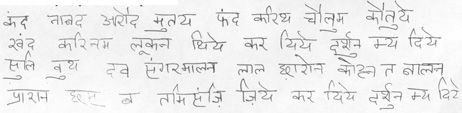 कंद नाबद अरौद मुतय फंद करिथ चौलुम कौतुये
खंद करिनम लूकन थिये कर यिये दर्शुन म्य दिये
सुलि वुथ दव संगरमालन लाल छारोन कोहन त बालन
प्रारान छस ब तमिसंज़ि ज़िये कर यिये दर्शुन म्य दिये